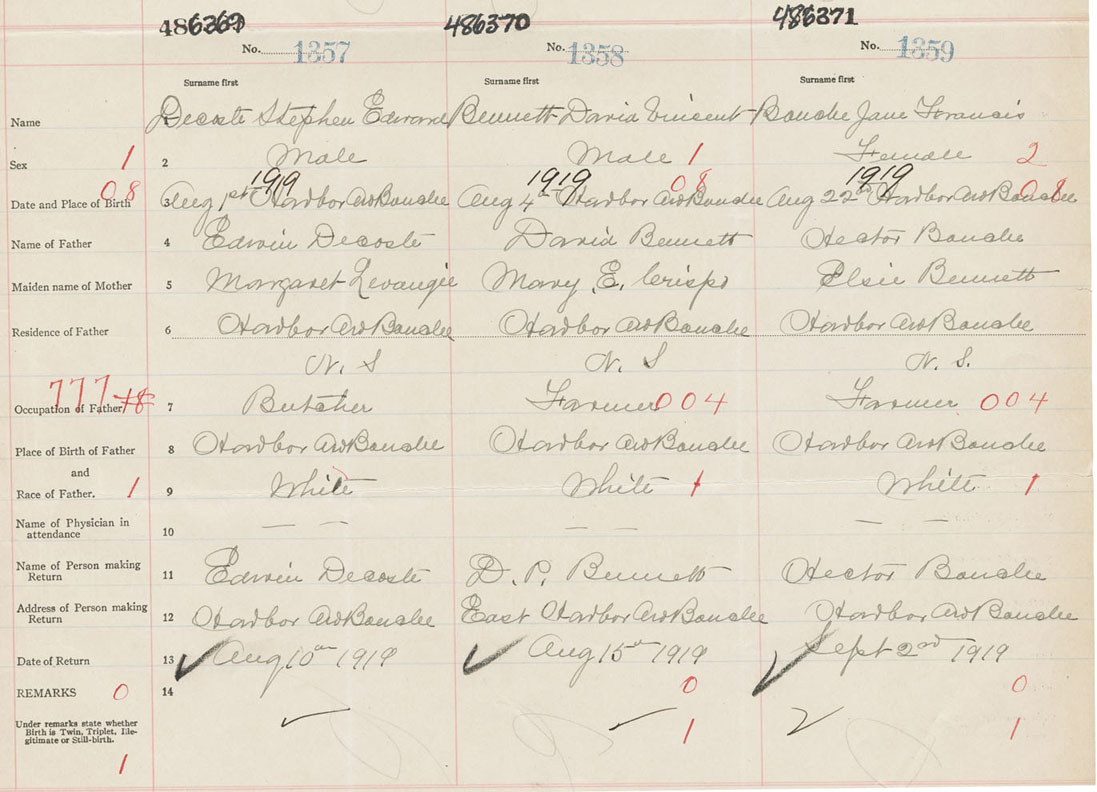 486369 486370 486371
No. 1357 No. 1358 No. 1359
Surname first Surname first Surname first
Name Decoste Stephen Edward Bennett David Vincent Boudie Jane Francis
Sex 1 2 Male Male 1 Female 2
08 1919 1919 08 1919 08
Date and Place of Birth 3 Aug 1st Harbor AuBouche Aug 4th Harbor AuBouche Aug 22nd Harbor AuBouche
Name of Father 4 Edwin Decoste David Bennett Hector Boudie
Maiden name of Mother 5 Margaret Levangie Mary E. Crispo Elsie Bennett
Residence of Father 6 Harbor AuBouche Harbor AuBouche Harbor AuBouche
N. S N. S N. S.
777
Occupation of Father 7 Butcher Farmer 004 Farmer 004
Place of Birth of Father 8 Harbor AuBouche Harbor AuBouche Harbor AuBouche
and
Race of Father. 1 9 White White 1 White 1
Name of Physician in
attendance 10 — — — — — —
Name of Person making
Return 11 Edwin Decoste D. P. Bennett Hector Boudie
Address of Person making
Return 12 Harbor AuBouche East Harbor AuBouche Harbor AuBouche
Date of Return 13 Aug 10th 1919 Aug 15th 1919 Sept 2nd 1919
REMARKS 0 14 0 0
Under remarks state whether
Birth is Twin, Triplet, Ille-
gitimate or Still-birth.
1 1 1